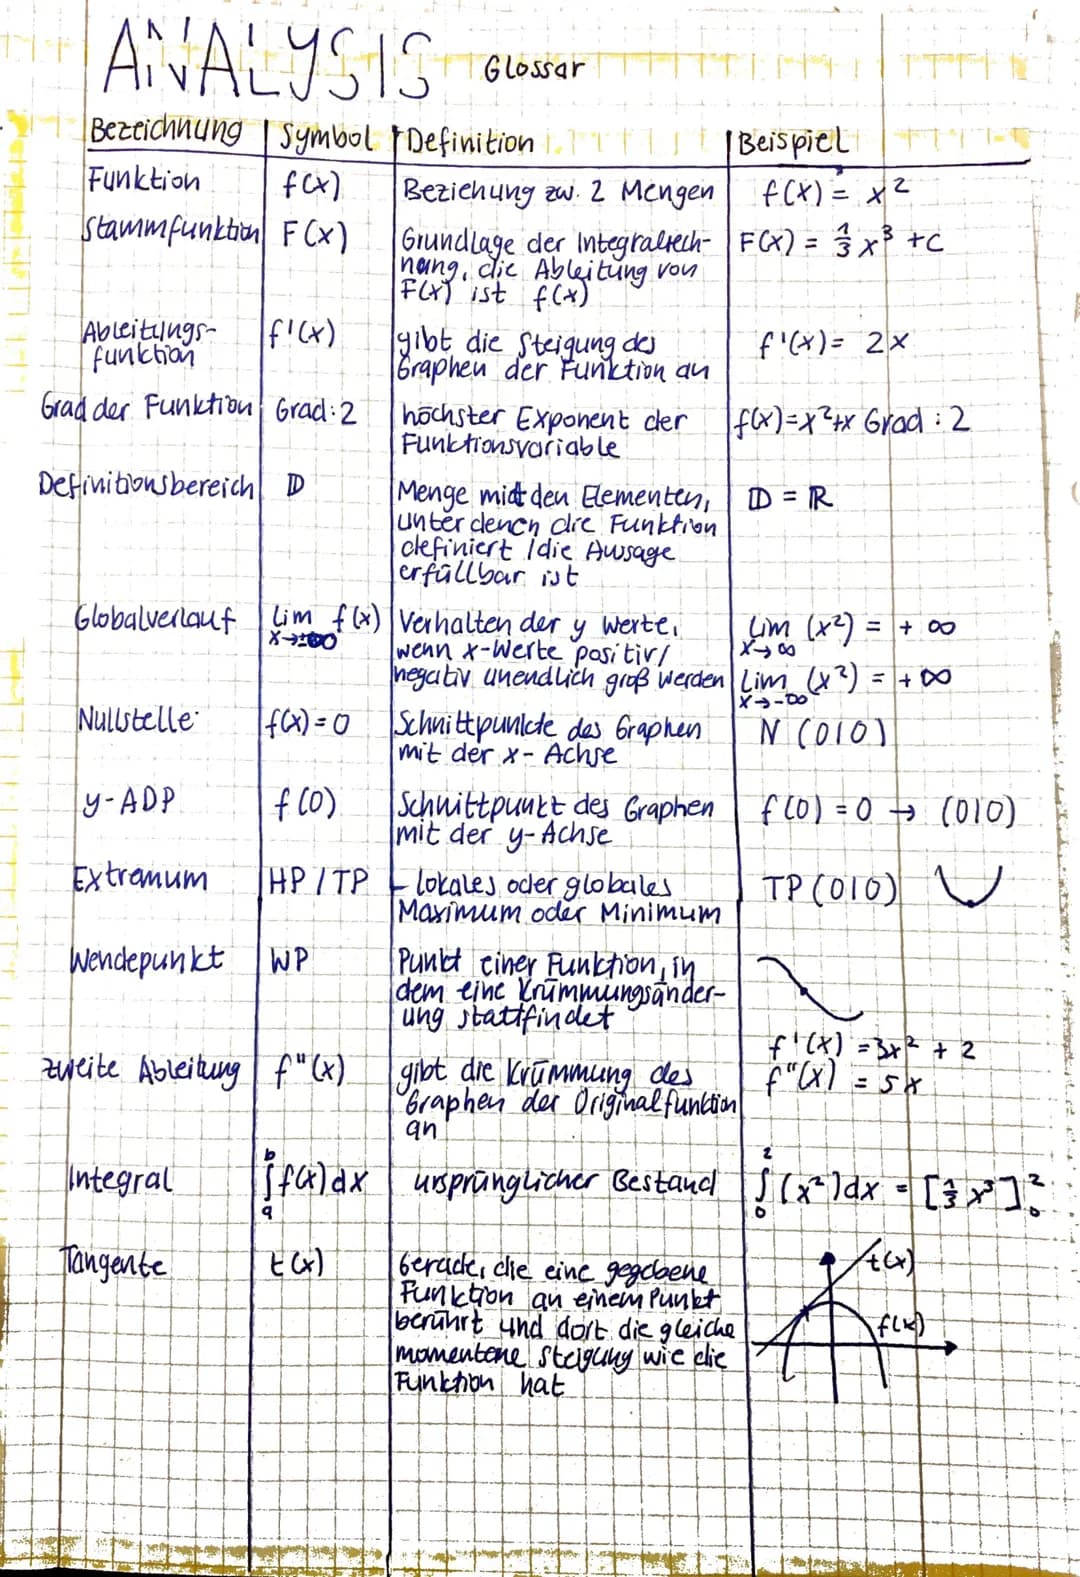 ANALYSIS Glossar
Bezeichnung | Symbol | Definition | Beispiel
Funktion | f(x) | Beziehung zw. 2 Mengen | f(x) = x²
Stammfunktion | F(x) | Grundlage der Integralrech- | F(x) = 1/3 x³ + C
nung, die Ableitung von
F(x) ist f(x)
Ableitungs- | f'(x) | gibt die Steigung des | f'(x) = 2x
funktion | Graphen der Funktion an
Grad der Funktion | Grad: 2 | höchster Exponent der | f(x)=x²+x Grad: 2
Funktionsvariable
Definitionsbereich | 𝔻 | Menge mit den Elementen, | 𝔻 = ℝ
unter denen die Funktion
definiert / die Aussage
erfüllbar ist
Globalverlauf | lim f(x) | Verhalten der y Werte, | lim (x²) = + ∞
x→±∞ | wenn x-Werte positiv/ | x→∞
negativ unendlich groß werden | lim (x²) = + ∞
x→-∞
Nullstelle | f(x) = 0 | Schnittpunkte des Graphen | N (0|0)
mit der x-Achse
y-ADP | f(0) | Schnittpunkt des Graphen | f(0) = 0 → (0|0)
mit der y-Achse
Extremum | HP / TP | - lokales oder globales | TP (0|0)
Maximum oder Minimum
Wendepunkt | WP | Punkt einer Funktion, in
dem eine Krümmungsänder-
ung stattfindet
f'(x) = 3x² + 2
zweite Ableitung | f"(x) | gibt die Krümmung des | f"(x) = 5x
Graphen der Originalfunktion
an
Integral | ∫ₐᵇ f(x) dx | ursprünglicher Bestand | ∫₀² (x²) dx = [1/3 x³]₀²
Tangente | t(x) | Gerade, die eine gegebene | t(x)
Funktion an einem Punkt
berührt und dort die gleiche | f(x)
momentane Steigung wie die
Funktion hat